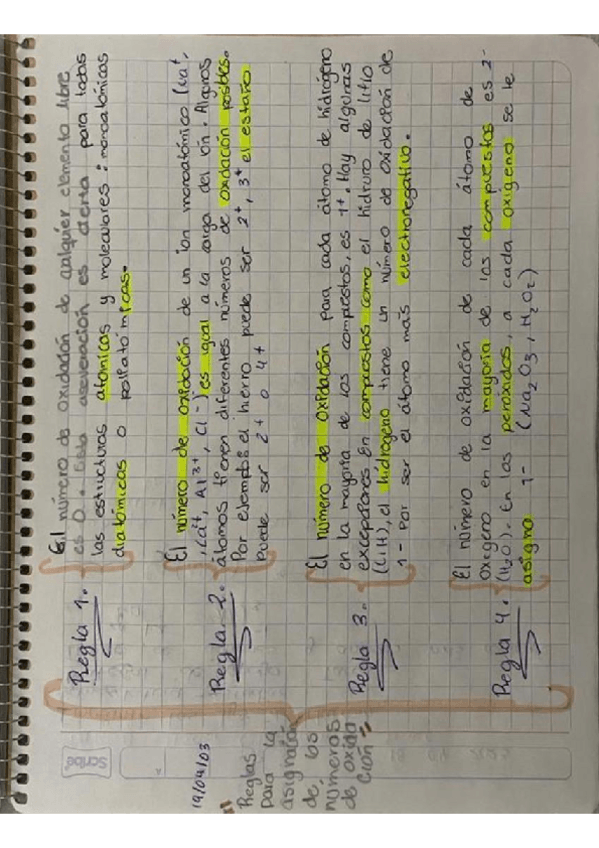 Scribe
19/04/03
Reglas
para la
asignación
de los
números
de oxida
ción
Regla 1.
El número de oxidación de cualquier elemento libre
es 0. Esta aseveración es cierta para todas
las estructuras atómicas y moleculares: monoatómicas
diatómicas o poliatómicas.
Regla 2.
El número de oxidación de un ion monoatómico (Na⁺,
Ca²⁺, Al³⁺, Cl⁻) es igual a la carga del ión. Algunos
átomos tienen diferentes números de oxidación posibles.
Por ejemplo: el hierro puede ser 2⁺, 3⁺ el estaño
puede ser 2+ o 4+
Regla 3.
El número de oxidación para cada átomo de hidrógeno
en la mayoría de los compuestos, es 1⁺. Hay algunas
excepciones En compuestos como el hidruro de litio
(LiH), el hidrógeno tiene un número de oxidación de
1- Por ser el átomo más electronegativo.
Regla 4.
El número de oxidación de cada átomo de
oxígeno en la mayoría de los compuestos es 2-
(H₂O). En los peróxidos, a cada oxígeno se le
asigna 1- (Na₂O₃, H₂O₂)